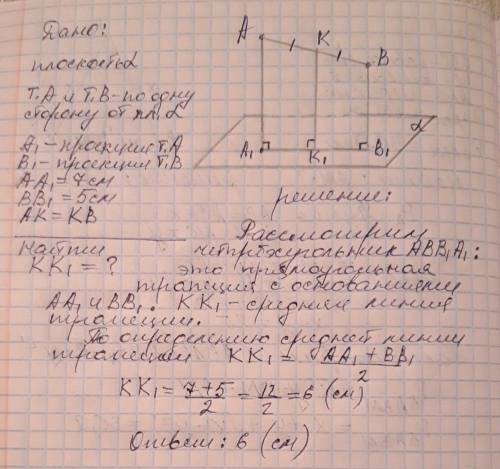 Дано:
плоскость α
т.А и т.В - по одну
сторону от пл. α
A₁ - проекция т.А
B₁ - проекция т.В
AA₁ = 7 см
BB₁ = 5 см
AK = KB
Найти
KK₁ = ?
A
K
B
α
A₁
K₁
B₁
решение:
Рассмотрим
четырёхугольник ABB₁A₁:
это прямоугольная
трапеция с основаниями
AA₁ и BB₁. KK₁ - средняя линия
трапеции.
По определению средней линии
трапеции KK₁ = AA₁ + BB₁ / 2
KK₁ = 7+5 / 2 = 12 / 2 = 6 (см)
Ответ: 6 (см)